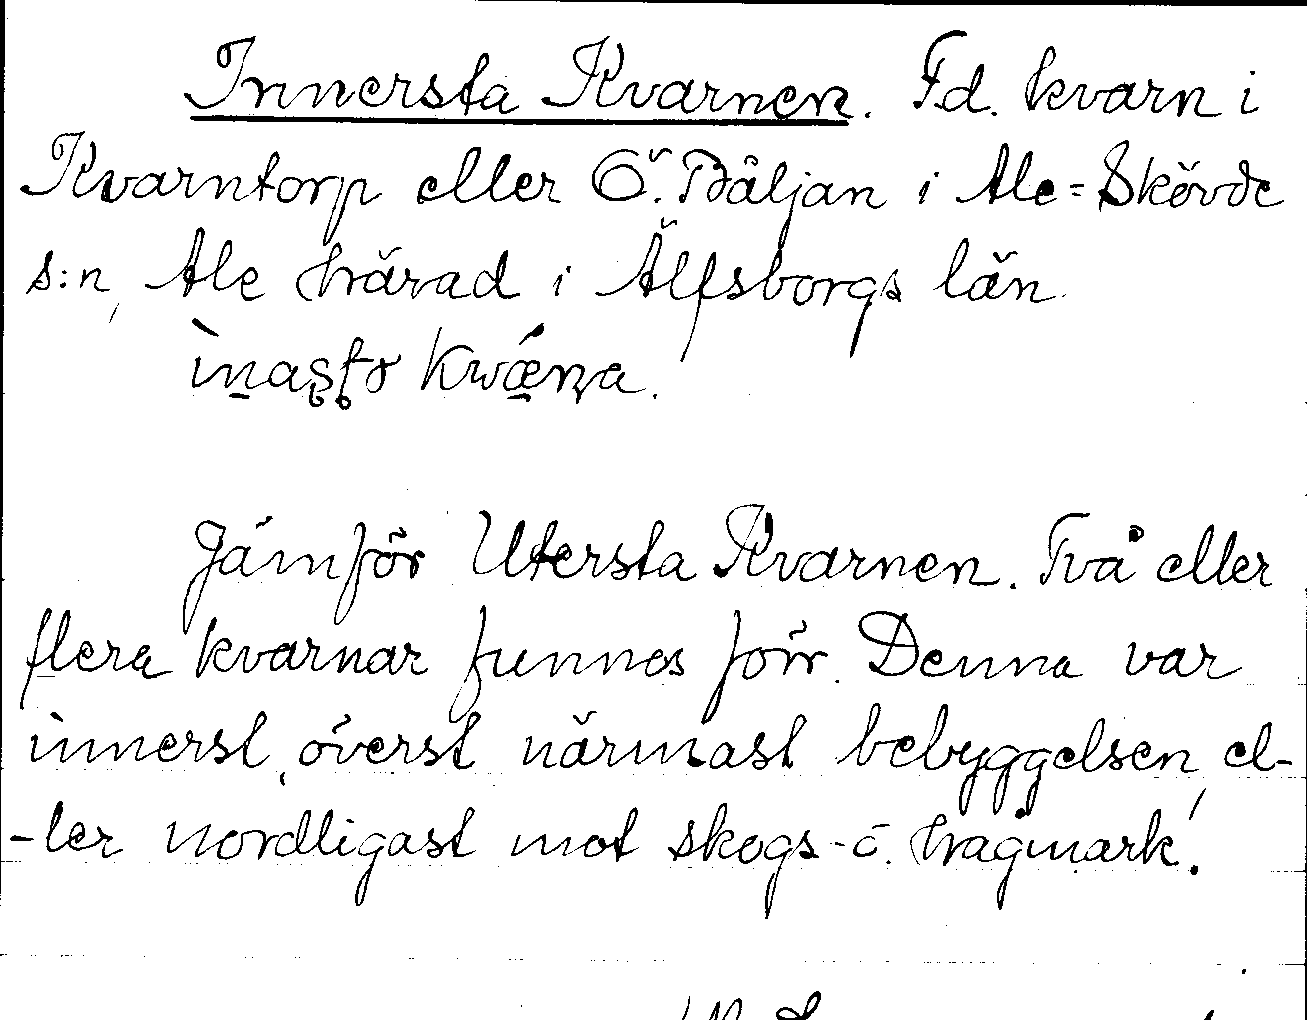 Innersta Kvarnen. Fd. kvarn i
Kvarntorp eller Ö. Båljan i Ale=Skövde
s:n, Ale härad i Älfsborgs län.
kwæṇa.
Jämför Utersta Kvarnen. Två eller
flera kvarnar funnos förr. Denna var
innerst, överst närmast bebyggelsen, el-
-ler nordligast mot skogs- o. hagmark!